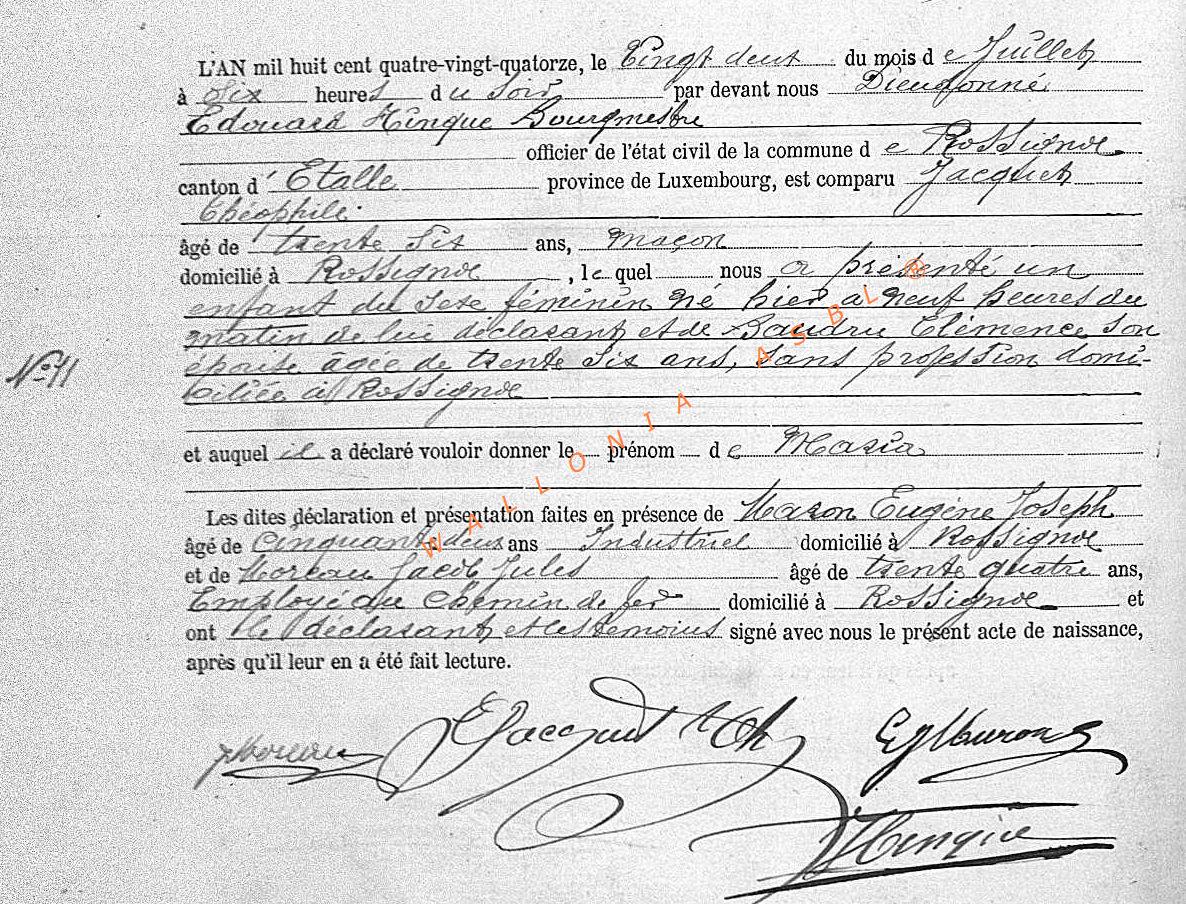 L'AN mil huit cent quatre-vingt-quatorze, le Vingt deux du mois d e Juillet
à Six heures du Soir par devant nous Dieudonné
Edouard Hinque Bourgmestre
officier de l'état civil de la commune d e Rossignol
canton d' Etalle province de Luxembourg, est comparu Jacquet
théophile.
âgé de trente Six ans, maçon
domicilié à Rossignol, le quel nous a présenté un
enfant du Sexe féminin né hier à neuf heures du
matin de lui déclarant et de Baudru Clémence Son
épouse âgée de trente Six ans, Sans profession domi-
N° 11
ciliée à Rossignol
et auquel il a déclaré vouloir donner le prénom d e Maria
Les dites déclaration et présentation faites en présence de Maron Eugène Joseph
âgé de Cinquante deux ans Industriel domicilié à Rossignol
et de Moreau Jacob Jules âgé de trente quatre ans,
Employé au Chemin de fer domicilié à Rossignol et
ont le déclarant et les témoins signé avec nous le présent acte de naissance,
après qu'il leur en a été fait lecture.
JMoreau Jacquet Th EJMaron
Hinque
WALLONIA ASBL ®